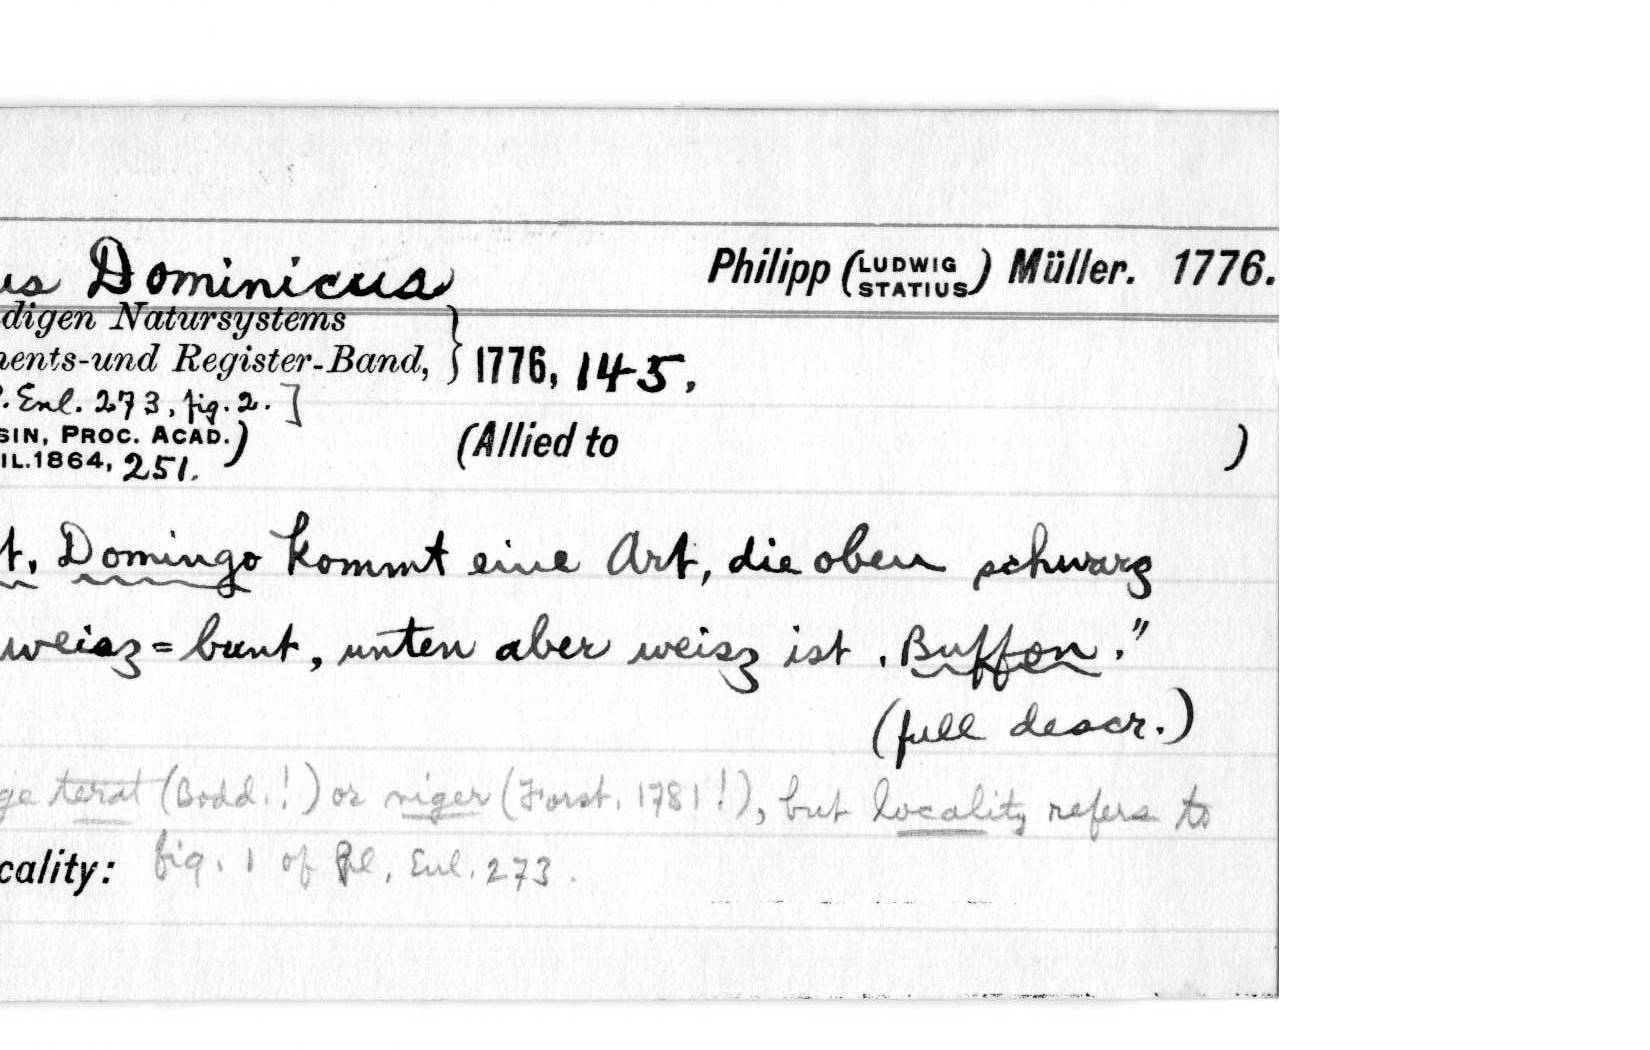 us Dominicus Philipp (LUDWIG STATIUS) Müller. 1776.
digen Natursystems
nents-und Register-Band, } 1776, 145.
. Enl. 273, fig. 2.]
SIN, PROC. ACAD.) (Allied to )
IL. 1864, 251.
t. Domingo kommt eine Art, die oben schwarz
weisz=bunt, unten aber weisz ist. Buffon."
(full descr.)
ge terat (Bodd.!) or niger (Forst. 1781!), but locality refers to
cality: fig. 1 of Pl. Enl. 273.